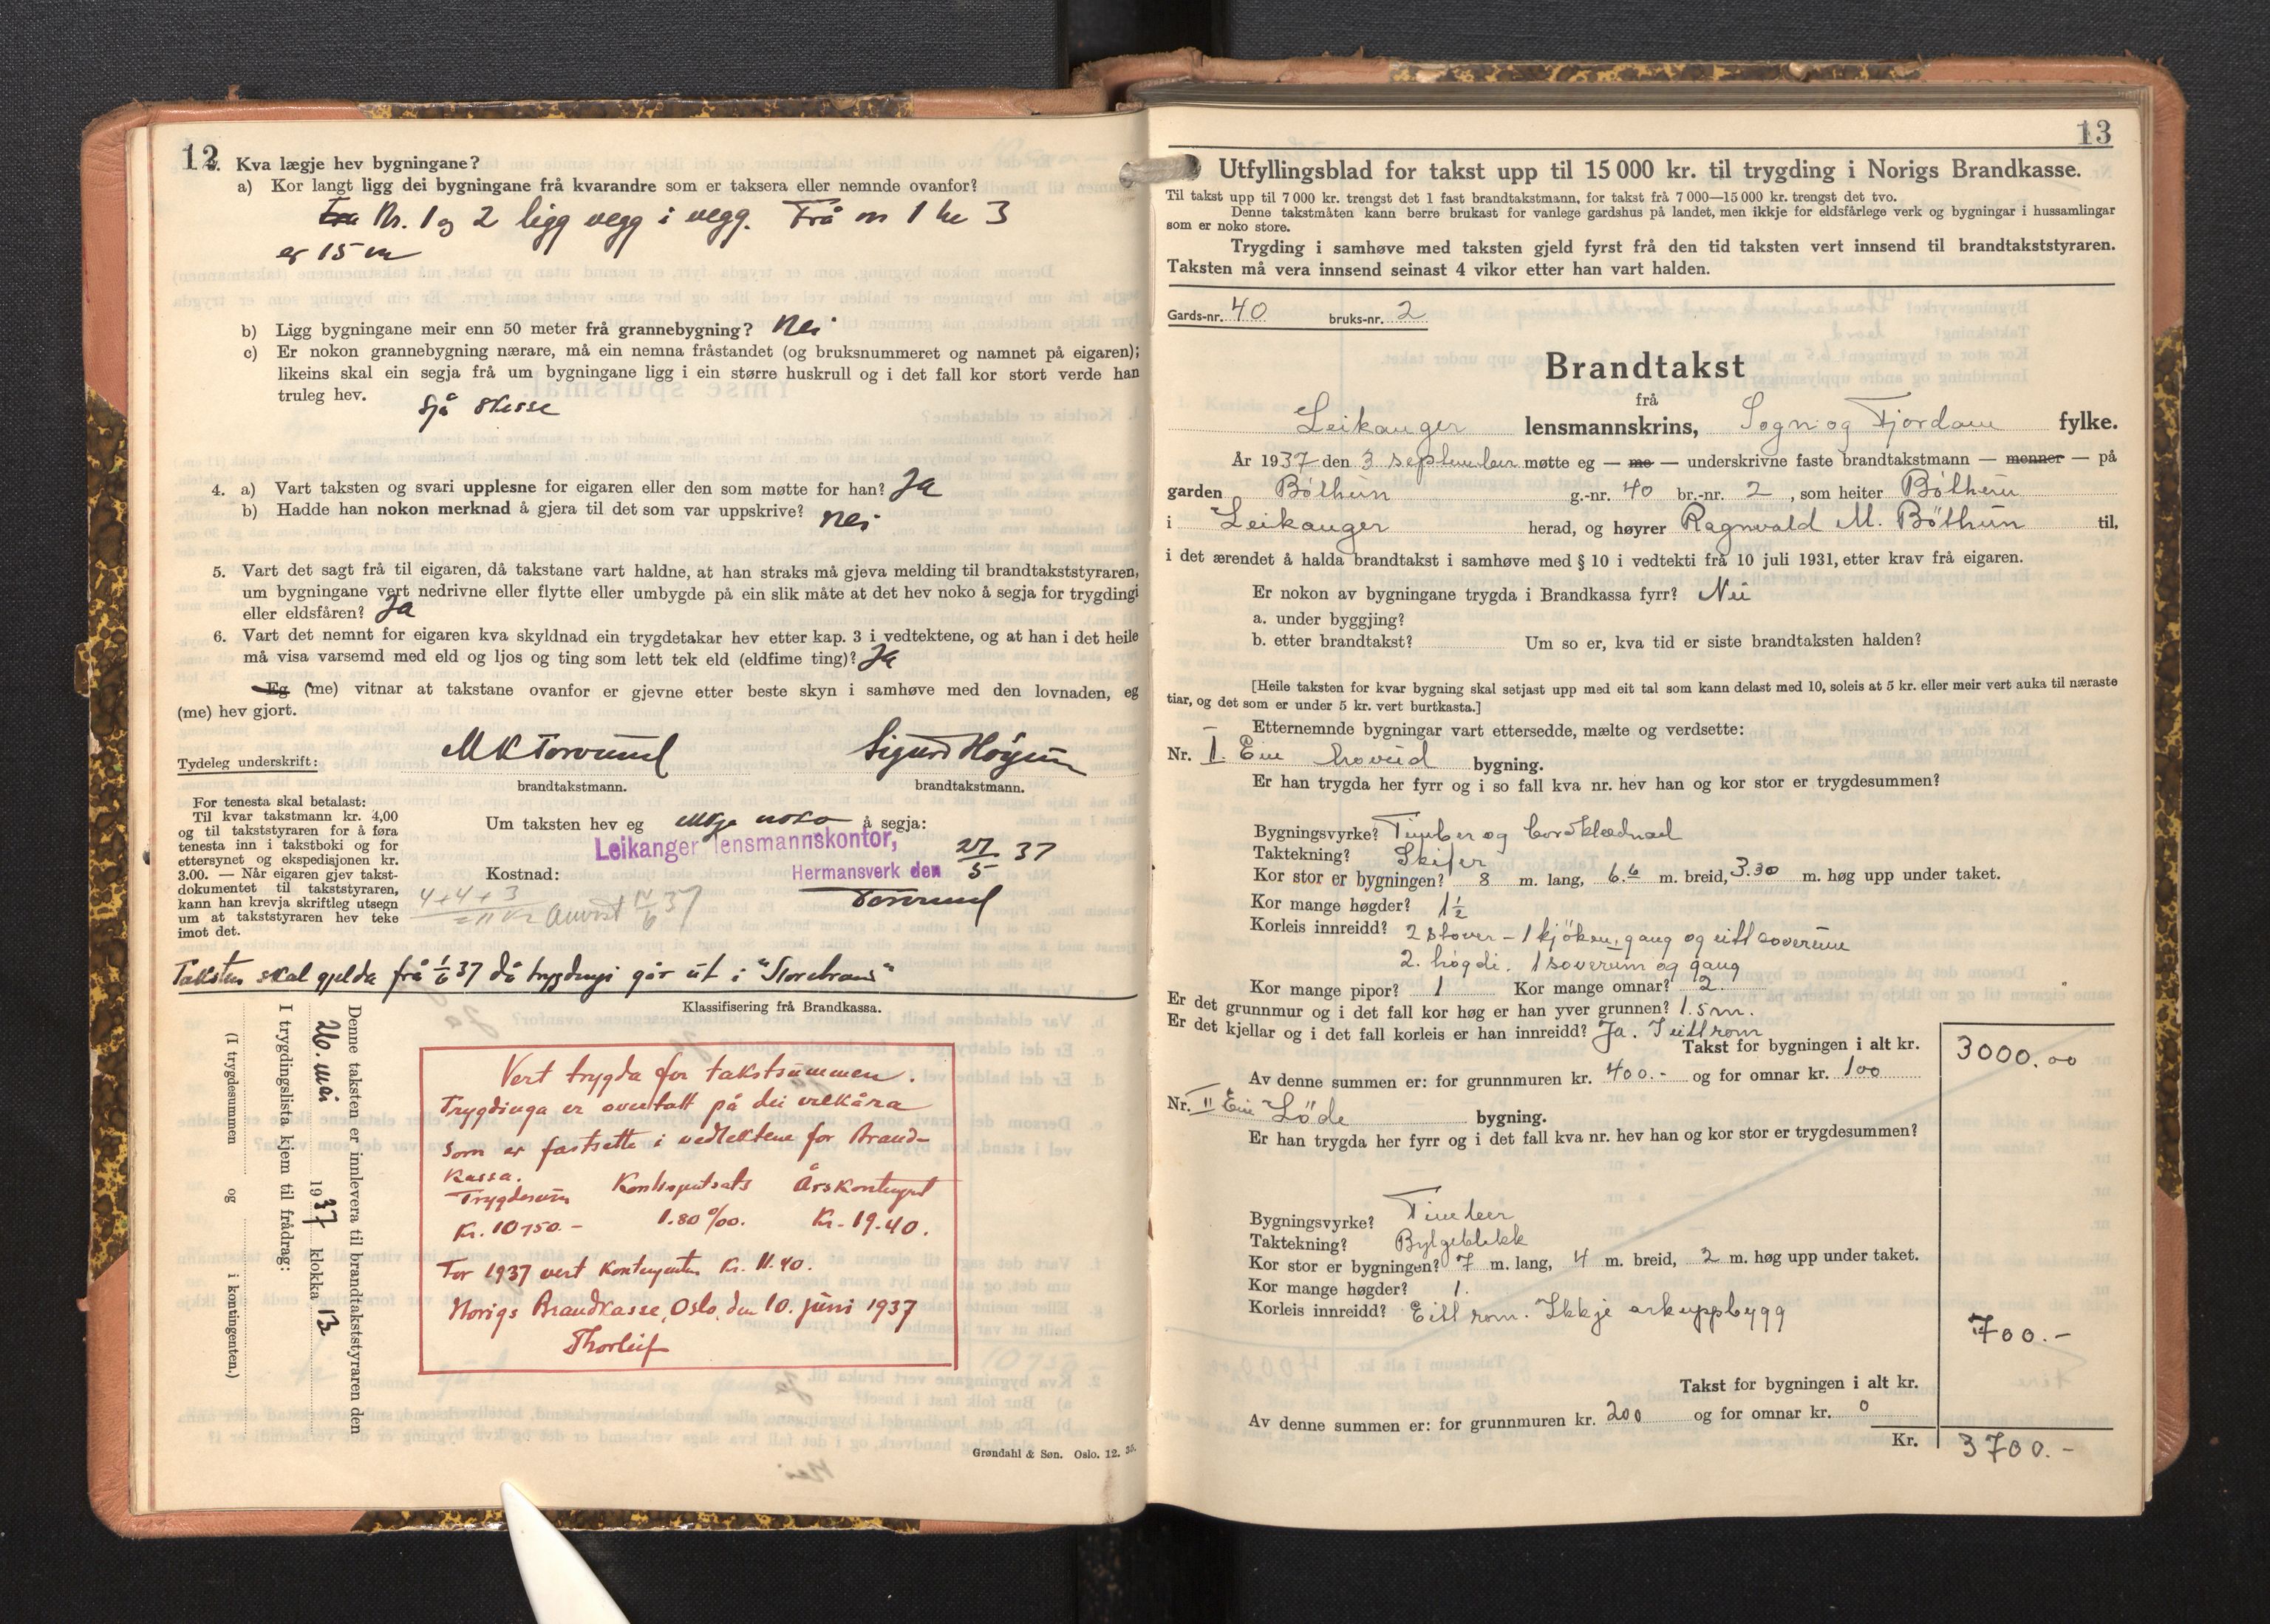 12
3. Kva lægje hev bygningane?
a) Kor langt ligg dei bygningane frå kvarandre som er taksera eller nemnde ovanfor?
Nr. 1 og 2 ligg vegg i vegg. Frå nr 1 til 3
er 15 m
b) Ligg bygningane meir enn 50 meter frå grannebygning? Nei
c) Er nokon grannebygning nærare, må ein nemna fråstandet (og bruksnummeret og namnet på eigaren);
likeins skal ein segja frå um bygningane ligg i ein større huskrull og i det fall kor stort verde han
truleg hev.
Sjå skisse
4. a) Vart taksten og svari upplesne for eigaren eller den som møtte for han? Ja
b) Hadde han nokon merknad å gjera til det som var uppskrive? Nei
5. Vart det sagt frå til eigaren, då takstane vart haldne, at han straks må gjeva melding til brandtakststyraren,
um bygningane vert nedrivne eller flytte eller umbygde på ein slik måte at det hev noko å segja for trygdingi
eller eldsfåren? Ja
6. Vart det nemnt for eigaren kva skyldnad ein trygdetakar hev etter kap. 3 i vedtektene, og at han i det heile
må visa varsemd med eld og ljos og ting som lett tek eld (eldfime ting)? Ja
Eg (me) vitnar at takstane ovanfor er gjevne etter beste skyn i samhøve med den lovnaden, eg
(me) hev gjort.
Tydeleg underskrift: M K Torvund Sigurd Høyum
brandtakstmann. brandtakstmann.
For tenesta skal betalast:
Til kvar takstmann kr. 4,00
og til takststyraren for å føra
tenesta inn i takstboki og for
ettersynet og ekspedisjonen kr.
3.00. — Når eigaren gjev takst-
dokumentet til takststyraren,
kann han krevja skriftleg utsegn
um at takststyraren hev teke
imot det.
Um taksten hev eg ikkje noko å segja:
Leikanger lensmannskontor,
Hermansverk den 27/5 37
Torvund
Kostnad:
4+4+3
= 11 kr Anvist 11/6 37
Taksten skal gjelda frå 1/6 37 då trygdingi går ut i "Storebrand"
Klassifisering frå Brandkassa.
Denne taksten er innlevera til brandtakststyraren den
26. mai 1937 klokka 13
I trygdingslista kjem til frådrag:
(I trygdesummen og i kontingenten.)
Vert trygda for takstsummen.
Trygdinga er overtatt på dei vilkåra
som er fastsette i vedtektene for Brand-
kassa.
Trygdesum Kontingentsats Årskontingent
Kr. 10750.- 1.80 ‰. Kr. 19.40.
For 1937 vert kontingenten Kr. 11.40.
Norigs Brandkasse, Oslo, den 10. juni 1937
Thorleif
Grøndahl & Søn. Oslo. 12. 35.
13
Utfyllingsblad for takst upp til 15 000 kr. til trygding i Norigs Brandkasse.
Til takst upp til 7 000 kr. trengst det 1 fast brandtakstmann, for takst frå 7 000—15 000 kr. trengst det tvo.
Denne takstmåten kann berre brukast for vanlege gardshus på landet, men ikkje for eldsfårlege verk og bygningar i hussamlingar
som er noko store.
Trygding i samhøve med taksten gjeld fyrst frå den tid taksten vert innsend til brandtakststyraren.
Taksten må vera innsend seinast 4 vikor etter han vart halden.
Gards-nr. 40 bruks-nr. 2
Brandtakst
frå
Leikanger lensmannskrins, Sogn og Fjordane fylke.
År 1937 den 3 september møtte eg — me — underskrivne faste brandtakstmann — menner — på
garden Bölhun g.-nr. 40 br.-nr. 2, som heiter Bölhun
i Leikanger herad, og høyrer Ragnvald M. Bölhun til,
i det ærendet å halda brandtakst i samhøve med § 10 i vedtekti frå 10 juli 1931, etter krav frå eigaren.
Er nokon av bygningane trygda i Brandkassa fyrr? Nei
a. under byggjing?
b. etter brandtakst? Um so er, kva tid er siste brandtaksten halden?
[Heile taksten for kvar bygning skal setjast upp med eit tal som kann delast med 10, soleis at 5 kr. eller meir vert auka til næraste
tiar, og det som er under 5 kr. vert burtkasta.]
Etternemnde bygningar vart ettersedde, mælte og verdsette:
Nr. I. Ein hovud bygning.
Er han trygda her fyrr og i so fall kva nr. hev han og kor stor er trygdesummen?
Bygningsvyrke? Timber og bordklædnad
Taktekning? Skifer
Kor stor er bygningen? 8 m. lang, 6.6 m. breid, 3.30 m. høg upp under taket.
Kor mange høgder? 1½
Korleis innreidd? 2 stover – 1 kjöken, gang og eitt soverum
2. högdi. 1 soverum og gang
Kor mange pipor? 1 Kor mange omnar? 2.
Er det grunnmur og i det fall kor høg er han yver grunnen? 1.5 m.
Er det kjellar og i det fall korleis er han innreidd? Ja. I eitt rom
Takst for bygningen i alt kr. 3000.00
Av denne summen er: for grunnmuren kr. 400.- og for omnar kr. 100
Nr. II Ein Löde bygning.
Er han trygda her fyrr og i det fall kva nr. hev han og kor stor er trygdesummen?
Bygningsvyrke? Timber
Taktekning? Bylgeblekk
Kor stor er bygningen? 7 m. lang, 4 m. breid, 2 m. høg upp under taket.
Kor mange høgder? 1.
Korleis innreidd? Eitt rom. Ikkje arkuppbygg
700.-
Takst for bygningen i alt kr.
Av denne summen er: for grunnmuren kr. 200 og for omnar kr. 0
Kr. 3700.-